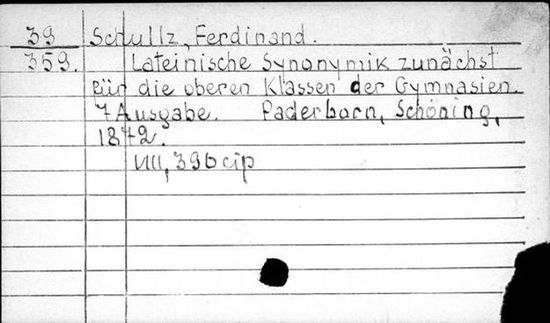 39 Schullz, Ferdinand.
359. Lateinische Synonymik zunächst
für die oberen Klassen der Gymnasien.
7 Ausgabe. Paderborn, Schöning,
1872.
VIII, 390 cip